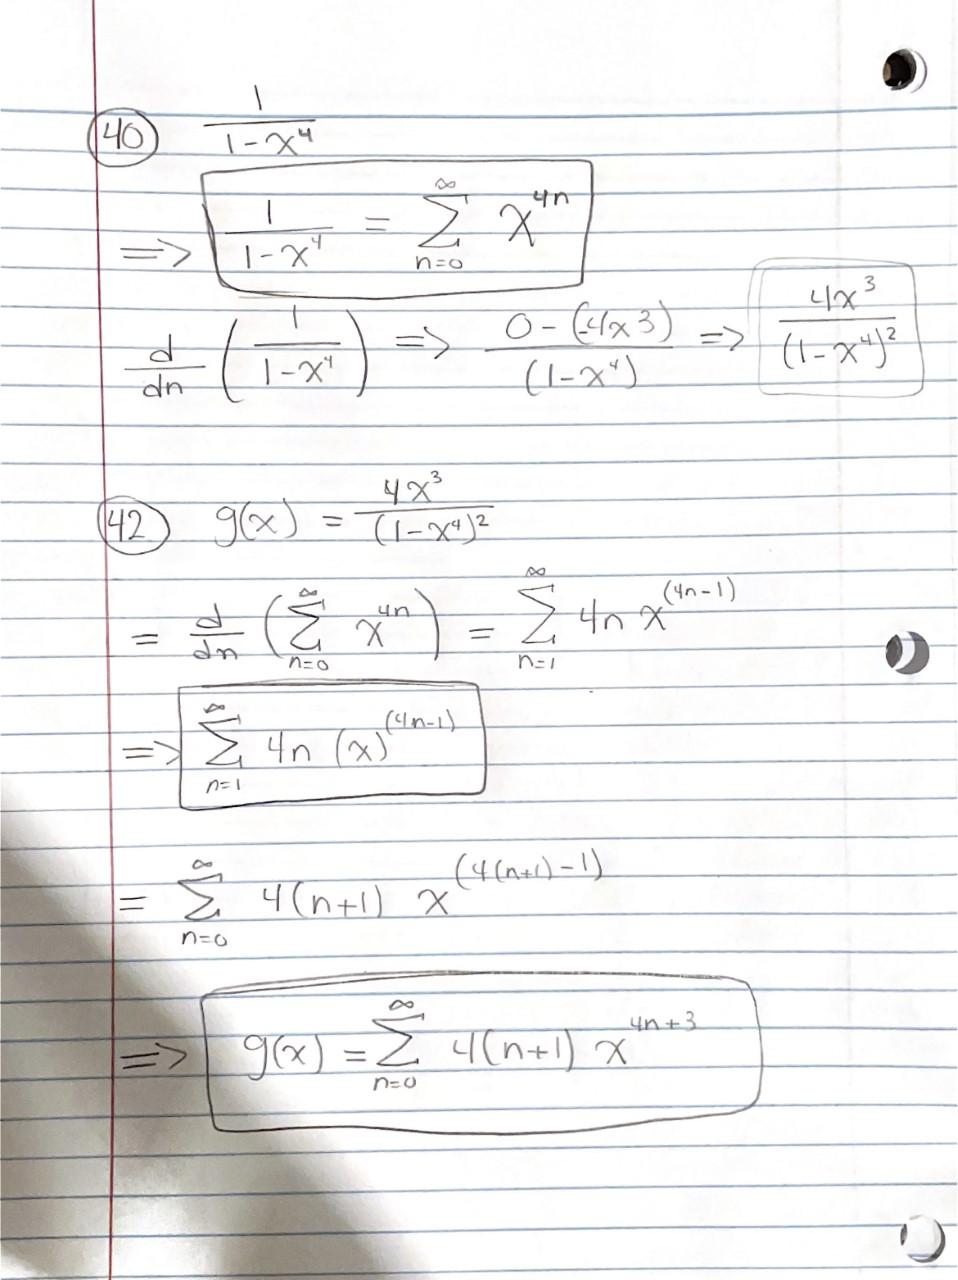 (40) 1/(1-x⁴)
=> 1/(1-x⁴) = ∞Σn=0 x^4n
d/dn (1/(1-x⁴)) => 0-(-4x3)/(1-x⁴) => 4x³/(1-x⁴)²
(42) g(x) = 4x³/(1-x⁴)²
= d/dn (∞Σn=0 x^4n) = ∞Σn=1 4n x^(4n-1)
=> ∞Σn=1 4n (x)^(4n-1)
= ∞Σn=0 4(n+1) x^(4(n+1)-1)
=> g(x) = ∞Σn=0 4(n+1) x^4n+3